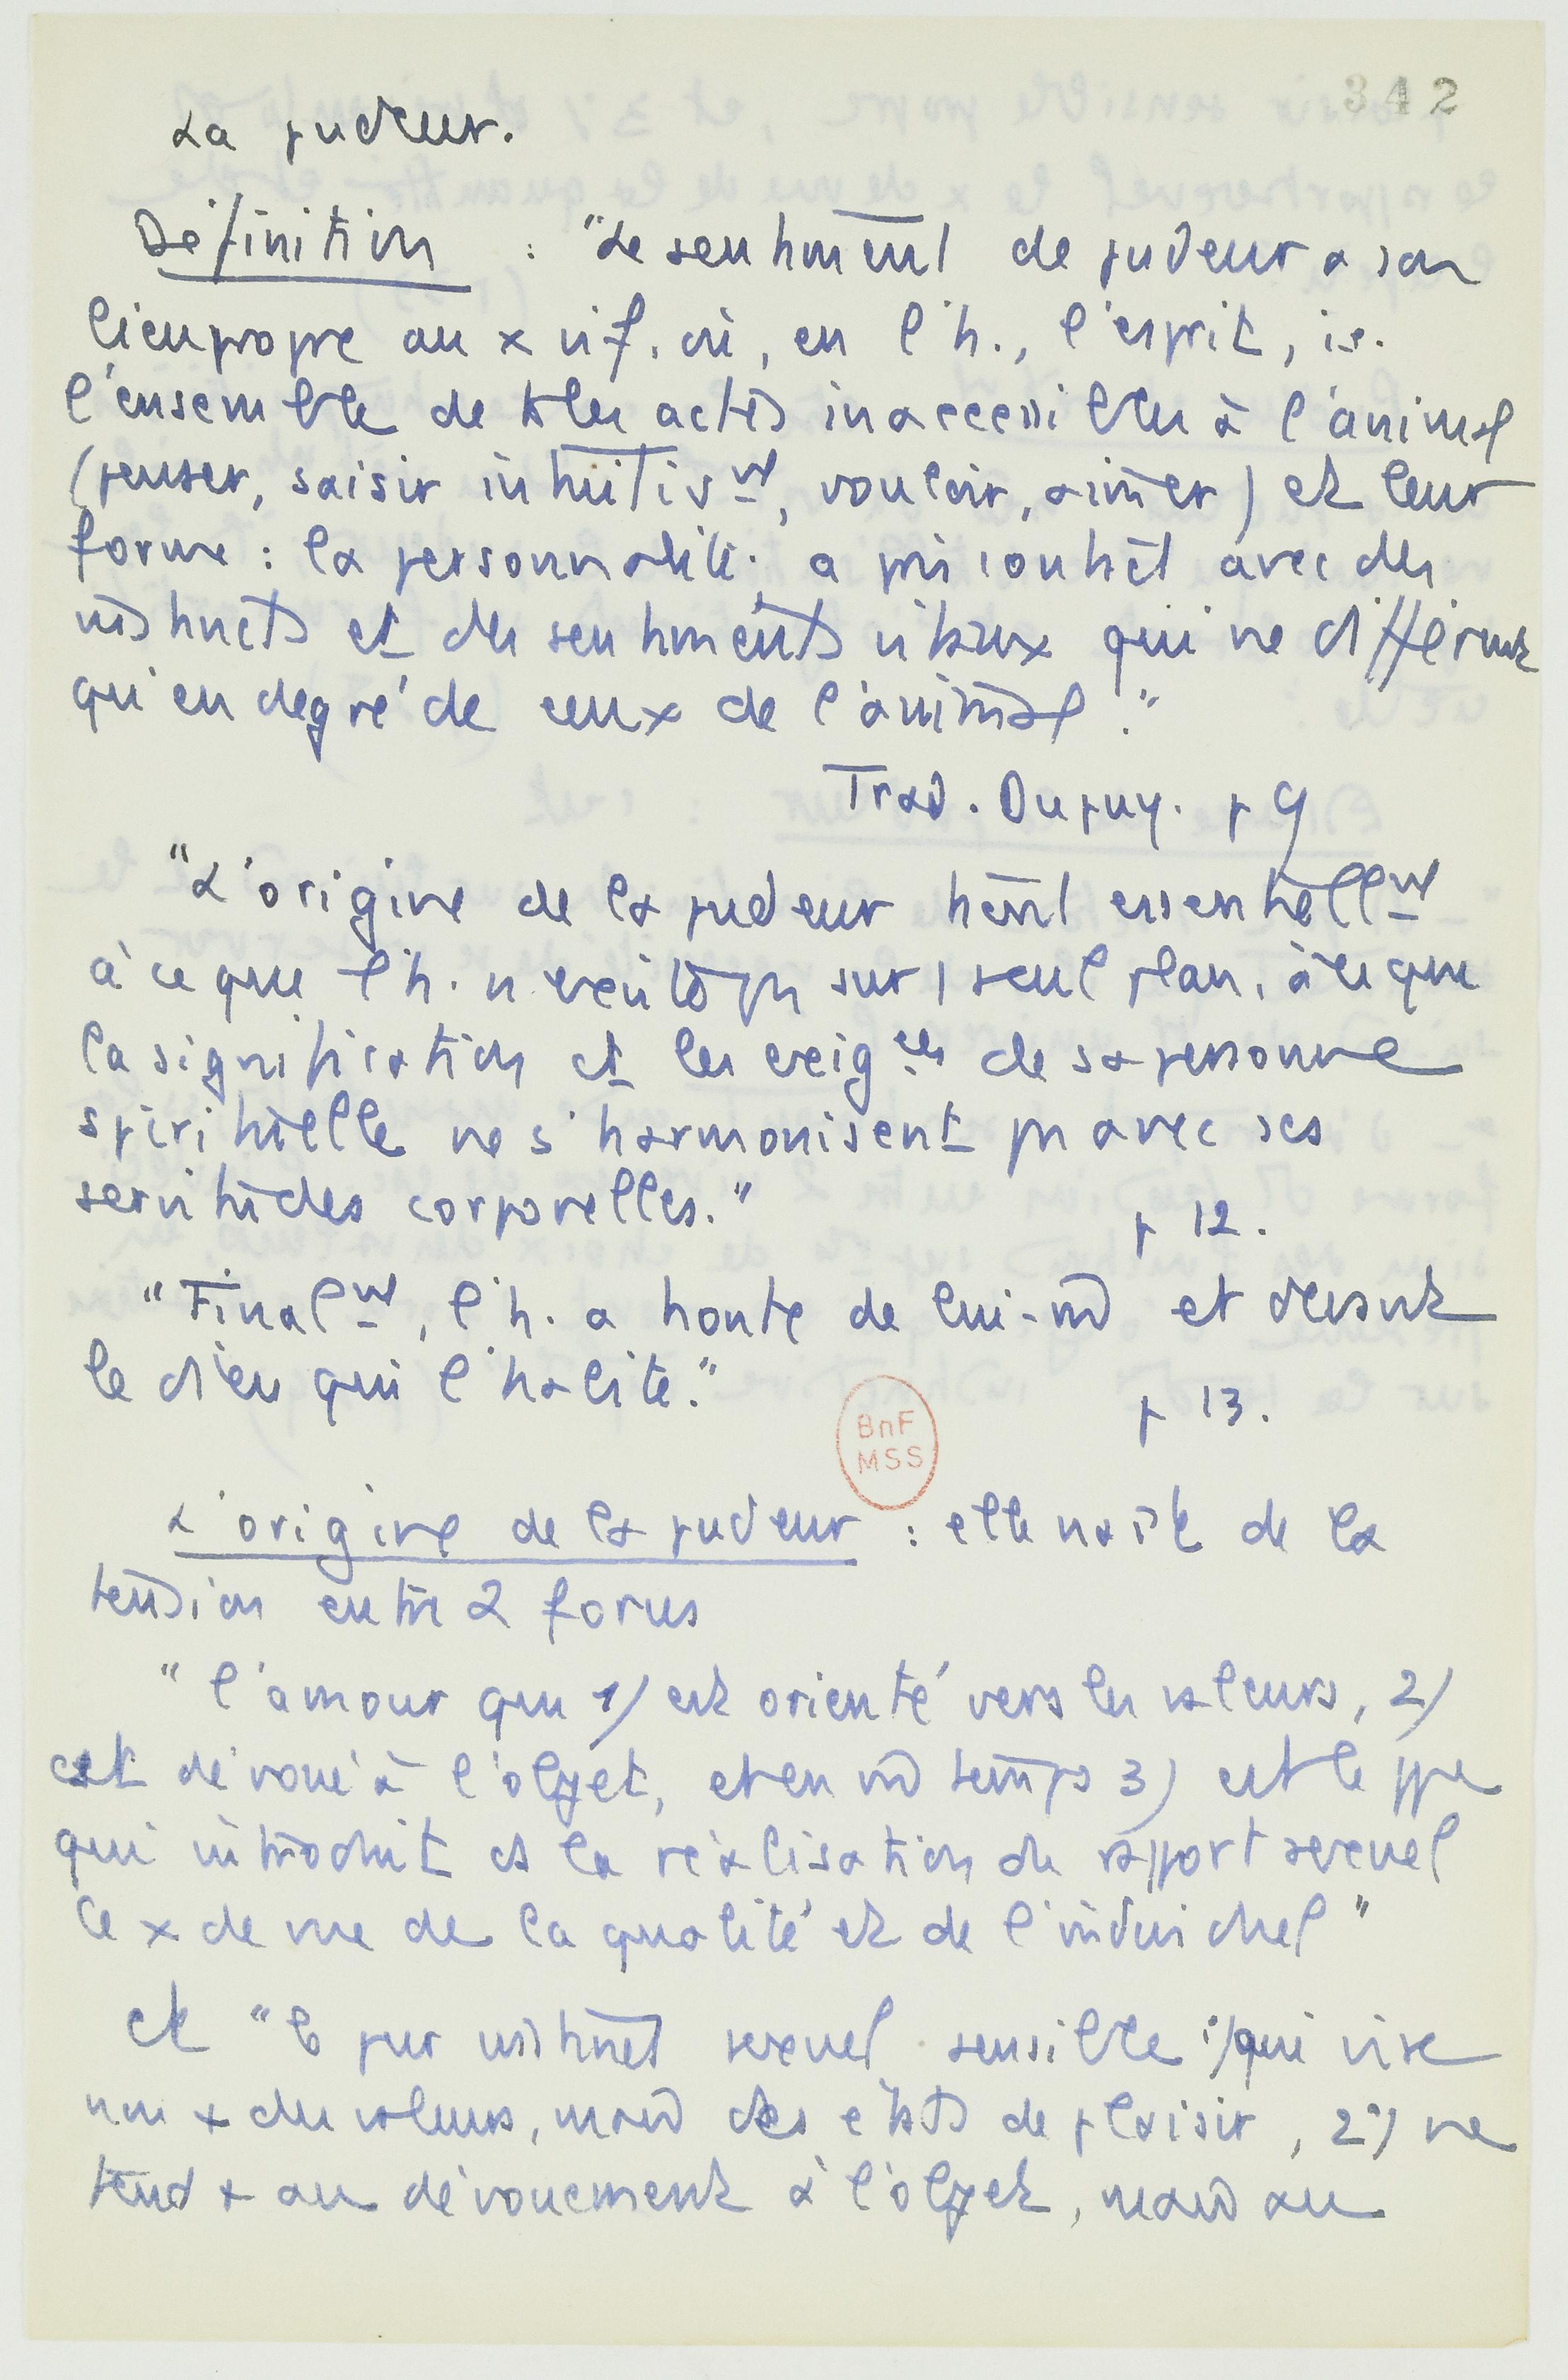 342
La pudeur.
Définition : "Le sentiment de pudeur a son
lieu propre au x vif. où, en l'h., l'esprit, ie.
l'ensemble de ts les actes inaccessibles à l'animal
(penser, saisir intuitivmt, vouloir, aimer) et leur
forme : la personnalité. a pris contact avec des
instincts et des sentiments vitaux qui ne diffèrent
qu'en degré de ceux de l'animal."
Trad. Dupuy. p 9
"L'origine de la pudeur tient essentiellmt
à ce que l'h. n'existe pas sur 1 seul plan, à ce que
la signification et les exigces de sa personne
spirituelle ne s'harmonisent pas avec ses
servitudes corporelles."
p 12.
"Finalmt, l'h. a honte de lui-m et devant
le dieu qui l'habite."
p 13.
BnF
MSS
L'origine de la pudeur : elle naît de la
tension entre 2 forces
"l'amour qui 1/ est orienté vers les valeurs, 2/
est dévoué à l'objet, et en m temps 3) est le ppe
qui introduit ds la réalisation du rapport sexuel
le x de vue de la qualité et de l'individuel"
et "le pur instinct sexuel sensible 1°/ qui vise
non x des valeurs, mais des états de plaisir, 2°/ ne
tend x au dévouement à l'objet, mais au